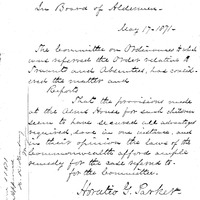 In Board of Aldermen
May 17. 1871.
The Committee on Ordinances to which
was referred the Order relative to
Truants and Absentees, has consid-
ered the matter and
Reports
That the provisions made
at the Alms House for such children
seem to have secured all advantages
required save in one instance, and
in their opinion the laws of the
Commonwealth afford ample
remedy for the case referred to.
for the Committee.
Horatio G. Parker